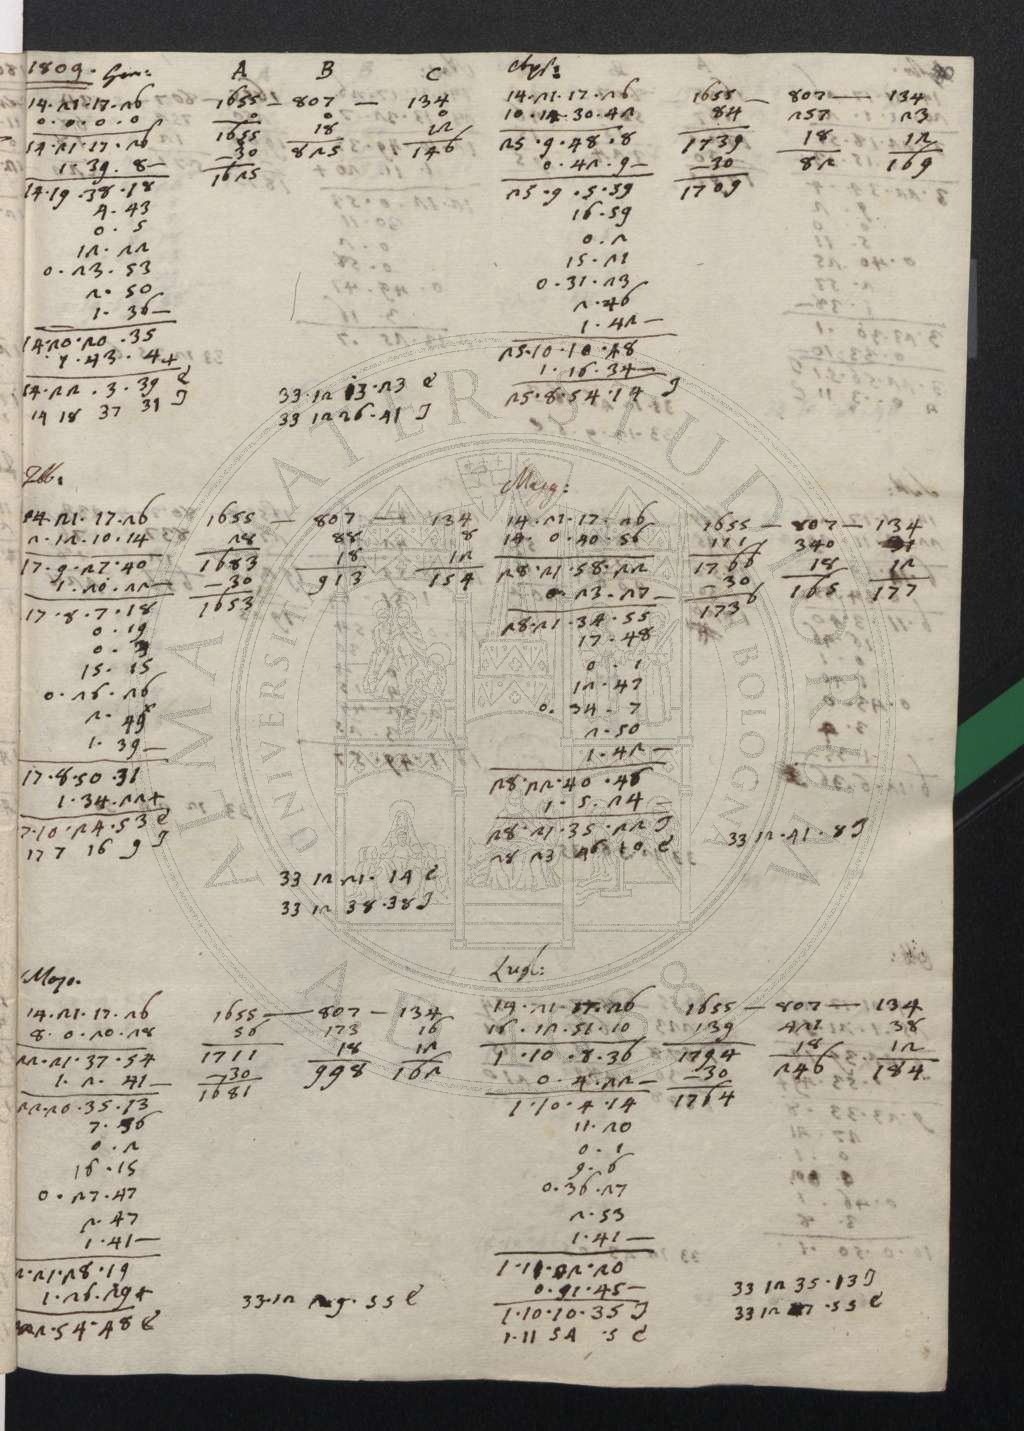 1809. Gen: A B C
14.21.17.26 1655 — 807 — 134
0.0.0.0 0 0 0
14.21.17.26 1655 18 12
1.39.8— —30 825 146
14.19.38.18 1625
4.43
0.5
12.22
0.23.53
2.50
1.36—
14.20.20.35
1.43.4+
14.22.3.39 C
14 18 37 31 J
33.12 13.23 C
33 12 26.41 J
Apl:
14.21.17.26 1655 — 807 — 134
10.14.30.42 84 257 23
25.9.48.8 1739 18 12
0.42.9— —30 82 169
25.9.5.59 1709
16.59
0.2
15.21
0.31.23
2.46
1.42—
25.10.10.48
1.16.34—
25.8.54.14 J
Feb:
14.21.17.26 1655 — 807 — 134
2.12.10.14 28 88 8
17.9.27.40 1683 18 12
1.20.22— —30 913 154
17.8.7.18 1653
0.19
0.3
15.15
0.26.26
2.48
1.39—
17.8.50.31
1.34.22+
7.10.24.53 C
17 7 16 9 J
33 12 21.14 C
33 12 38.38 J
Marz:
14.21.17.26 1655 — 807 — 134
14.0.40.56 111 340 31
28.21.58.22 1766 18 12
0.23.27— —30 165 177
28.21.34.55 1736
17.48
0.1
12.47
0.34.7
2.50
1.42—
28.22.40.46
1.5.24—
28.21.35.22 J
28 23 46 10 C
33 12.41.8 J
Majo.
14.21.17.26 1655 — 807 — 134
8.0.20.28 56 173 16
22.21.37.54 1711 18 12
1.2.41— —30 998 162
22.20.35.13 1681
7.36
0.2
16.15
0.27.47
2.47
1.41—
2.21.28.19
1.26.29+
22.54.48 C
33.12 29.55 C
Lugl:
14.21.17.26 1655 — 807 — 134
16.12.51.10 139 421 38
1.10.8.36 1794 18 12
0.4.22— —30 246 184
1.10.4.14 1764
11.20
0.1
9.6
0.36.27
2.53
1.41—
1.11.02.20
0.51.45—
1.10.10.35 J
1.11 54.5 C
33 12 35.13 J
33 12 27.55 C
ALMA MATER STUDIORUM
UNIVERSITÀ DI BOLOGNA
A.D. 1088